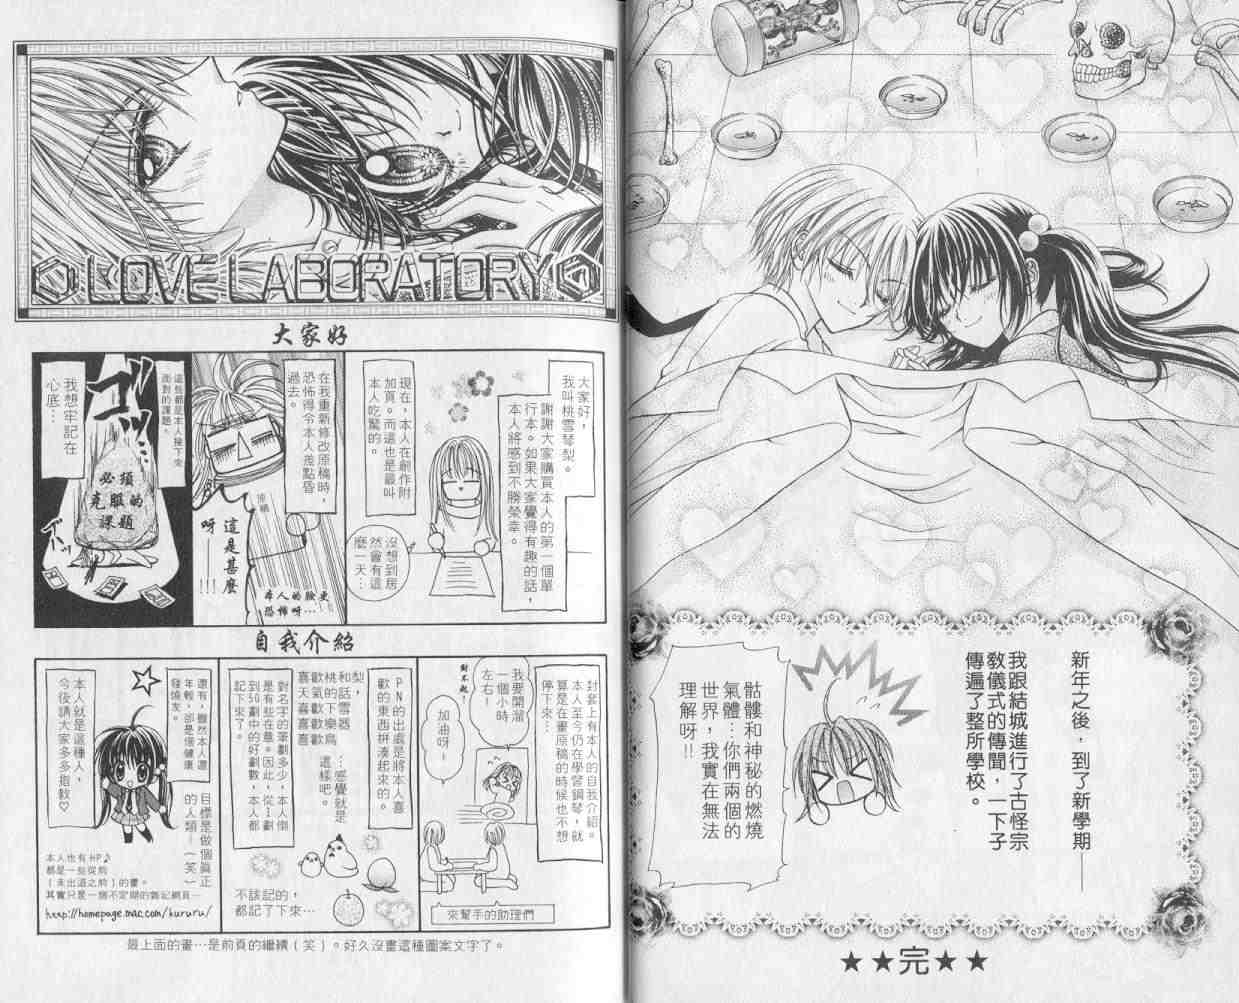 新年之後，到了新學期——
我跟結城進行了古怪宗
教儀式的傳聞，一下子
傳遍了整所學校。
骷髏和神秘的燃燒
氣體…你們兩個的
世界，我實在無法
理解呀!!
★★完★★
LOVE LABORATORY
大家好
大家好，
我叫桃雪琴梨。
謝謝大家購買本人的第一個單
行本。如果大家覺得有趣的話，
本人將感到不勝榮幸。
現在，本人在創作附
加頁。而這也是最叫
本人吃驚的。
沒想到居
然會有這
麼一天…
在我重新修改原稿時，
恐怖得令本人差點昏
過去。
這是甚麼
呀——!!!
本人的臉更
恐怖呀…
這些都是本人接下來
面對的課題。
我想牢記在
心底…
必須
克服的
課題
自我介紹
封套上有本人的自我介紹。
本人至今仍在學習鋼琴，就
算是在畫原稿的時候也不想
停下來…
我要開溜
一個小時
左右!
對不起!
加油呀!
來幫手的助理們
PN的出處是將本人喜
歡的東西拼湊起來的。
梨，
和話雪器
桃的下樂鳥
歡氣歡歡歡
喜天喜喜喜
…感覺就是
這樣吧。
對名字的筆劃多少，本人倒
是有些在意。因此，從1劃
到50劃中的好劃數，本人都
記下來了。
不該記的，
都記了下來…
還有，雖然本人還
年輕，卻是個健康
發燒友。
目標是做個真正
的人類—（笑）
本人就是這種人，
今後請大家多多指教♡
本人也有HP♪
都是一些從前
（未出道之前）的畫。
其實只是一個不定期的雜記網頁…
http://homepage.mac.com/kururu/
最上面的畫…是前頁的繼續（笑）。好久沒畫這種圖案文字了。